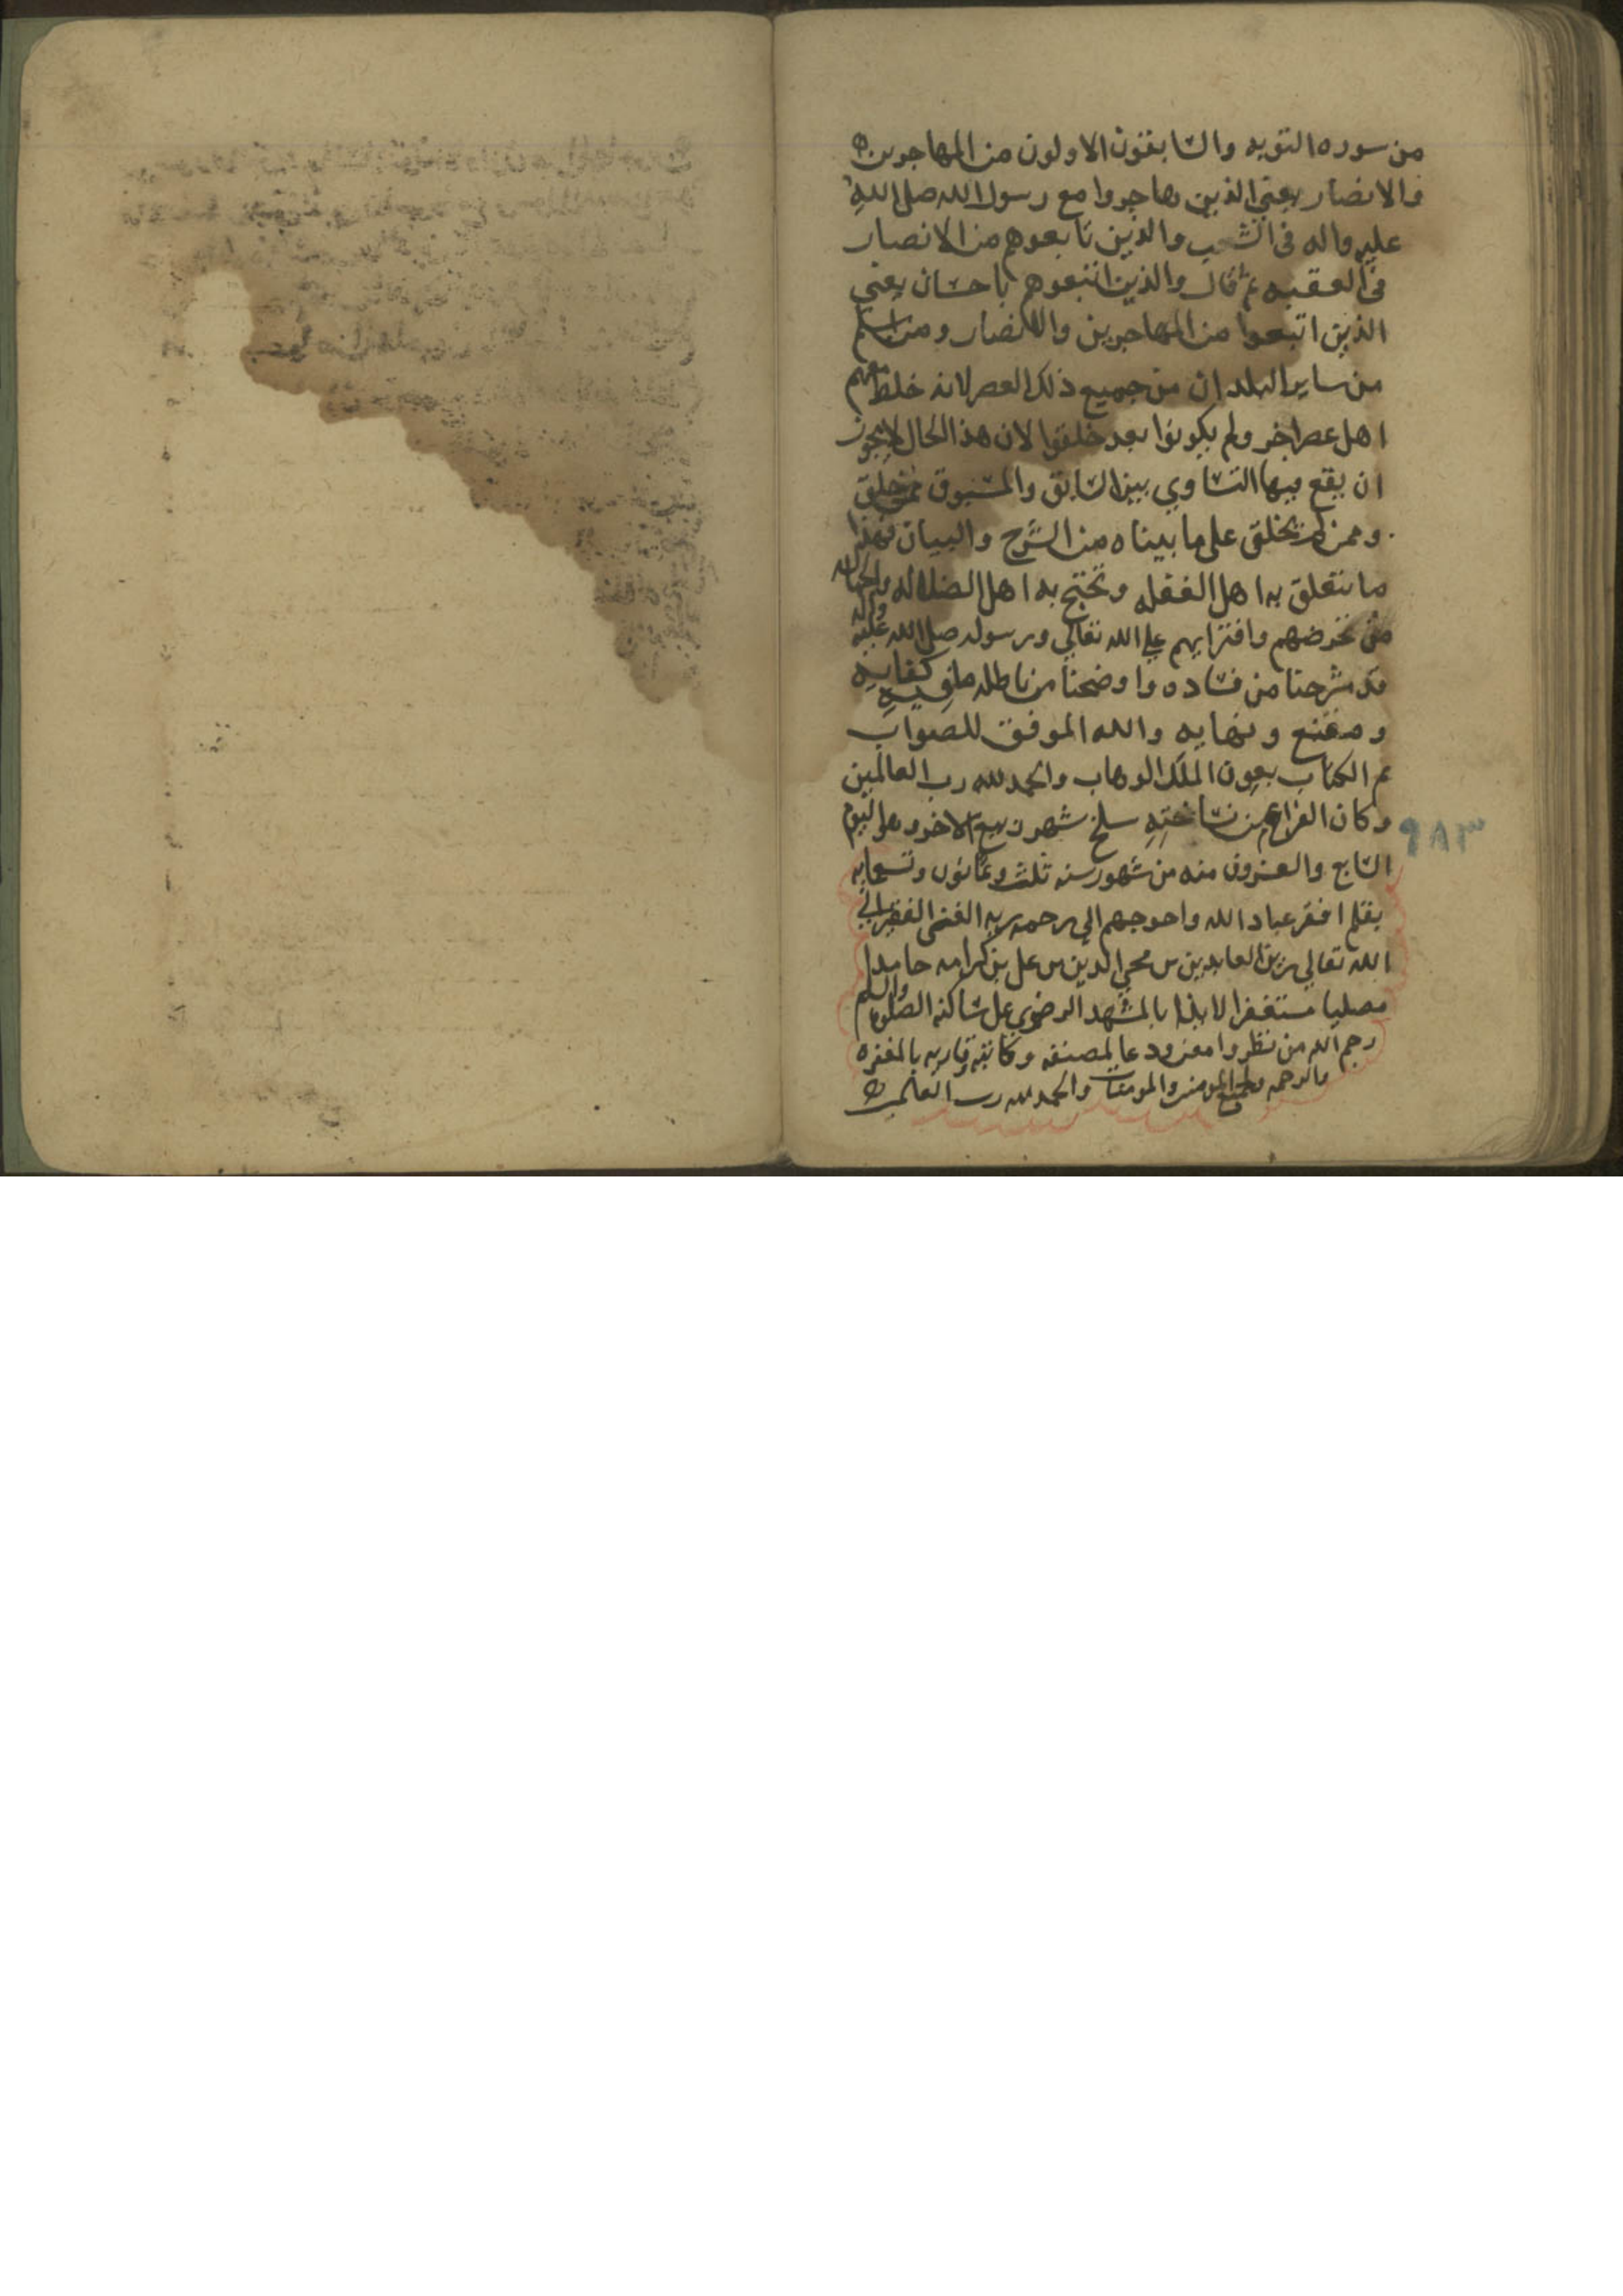 من سوره التوبه والسابقون الاولون من المهاجرين
والانصار يعني الذين هاجروا مع رسول الله صلى الله
عليه واله في الشعب والذين تابعوهم من الانصار
في العقبه ثم قال والذين اتبعوهم باحسان يعني
الذين اتبعوا من المهاجرين والانصار ومن اسلم
من ساير البلدان من جميع ذلك العصر لانه خلط معهم
اهل عصر اخر ولم يكونوا بعد خلقوا لان هذا الحال لا يجوز
ان يقع فيها التساوي بين السابق والمسبوق ممن خلق
وممن لم يخلق على ما بيناه من الشرح والبيان فهذا
ما يتعلق به اهل الغفله وتحتج به اهل الضلاله والجهاله
من تخرصهم وافترايهم على الله تعالي ورسوله صلى الله عليه واله
قد شرحنا من فساده واوضحنا من باطله ما فيه كفايه
ومقنع ونهايه والله الموفق للصواب
تم الكتاب بعون الملك الوهاب والحمد لله رب العالمين
وكان الفراغ من نساخته سلخ شهر ربيع الاخر وهو اليوم
٩٨٣
السابع والعشرون منه من شهور سنه ثلث وثمانون وتسعمايه
بقلم افقر عباد الله واحوجهم الي رحمه ربه الغني الفقير الي
الله تعالي زين العابدين بن محيي الدين بن علي بن كرامه حامدا
مصليا مستغفرا لايذا بالمشهد الرضوي على ساكنه الصلوه والسلم
رحم الله من نظر وامعن ودعا لمصنفه وكاتبه وقاريه بالمغفره
والرحمه ولجميع المومنين والمومنات والحمد لله رب العالمين